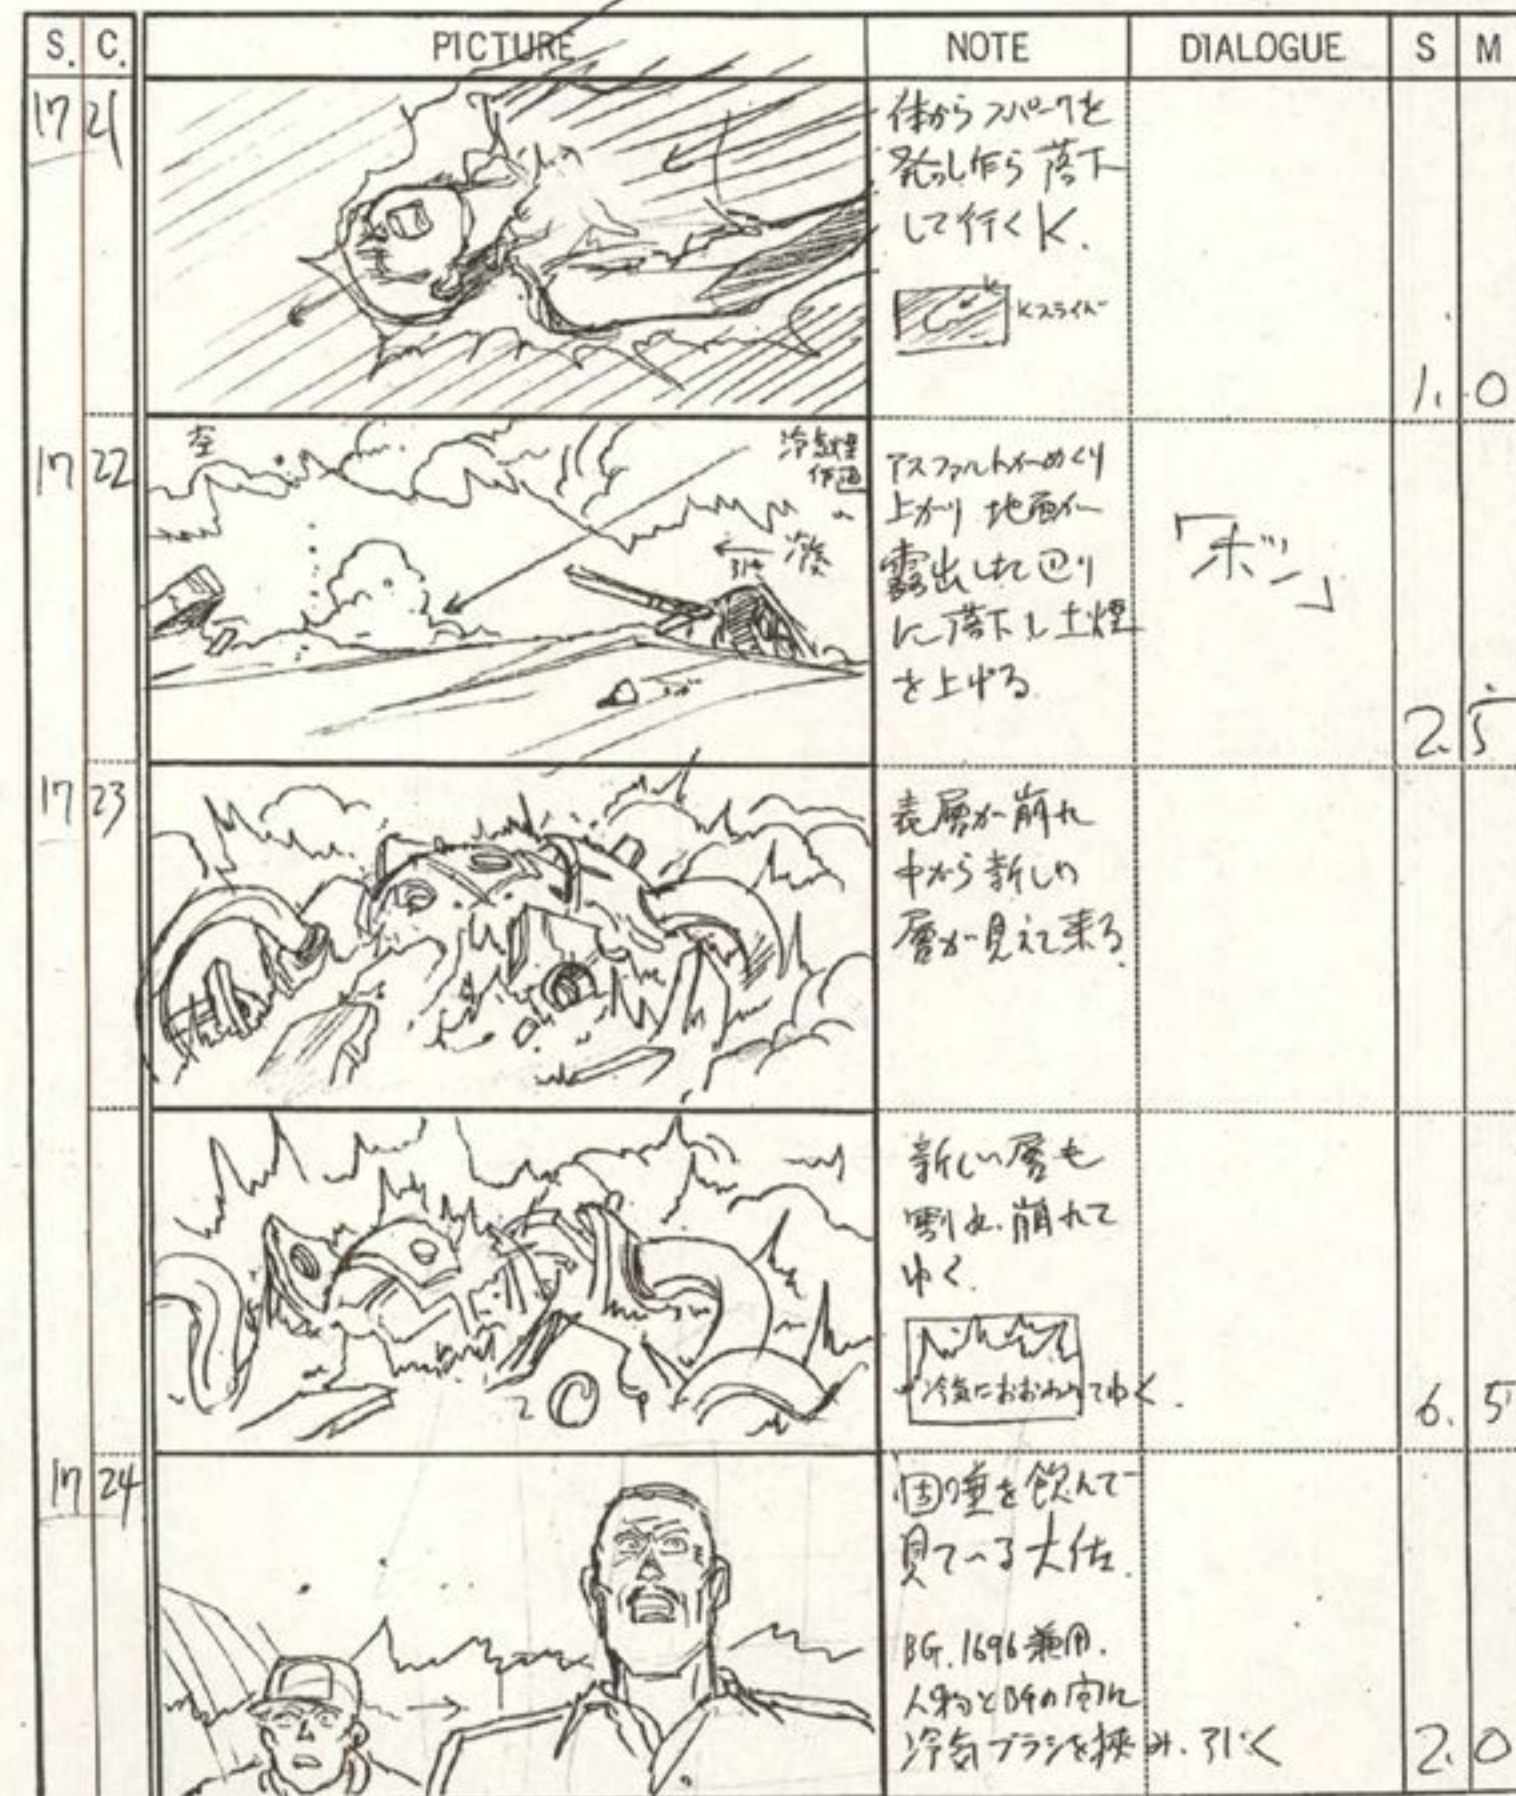 S. C. PICTURE NOTE DIALOGUE S M
17 21
体からスパークを
発っし乍ら落下
して行くK.
Kスライド
1. 0
17 22
空
冷気煙
作画
引き
アスファルトがめくり
上がり 地面が
露出した辺り
に落下し土煙
を上げる
「ボン」
2. 5
17 23
表層が崩れ
中から新しい
層が見えて来る.
新しい層も
割れ、崩れて
ゆく.
冷気におおわれてゆく.
6. 5
17 24
固唾を飲んで
見ている大佐.
BG.1696兼用.
人物とBGの間に
冷気ブラシを挟み、引く
2. 0